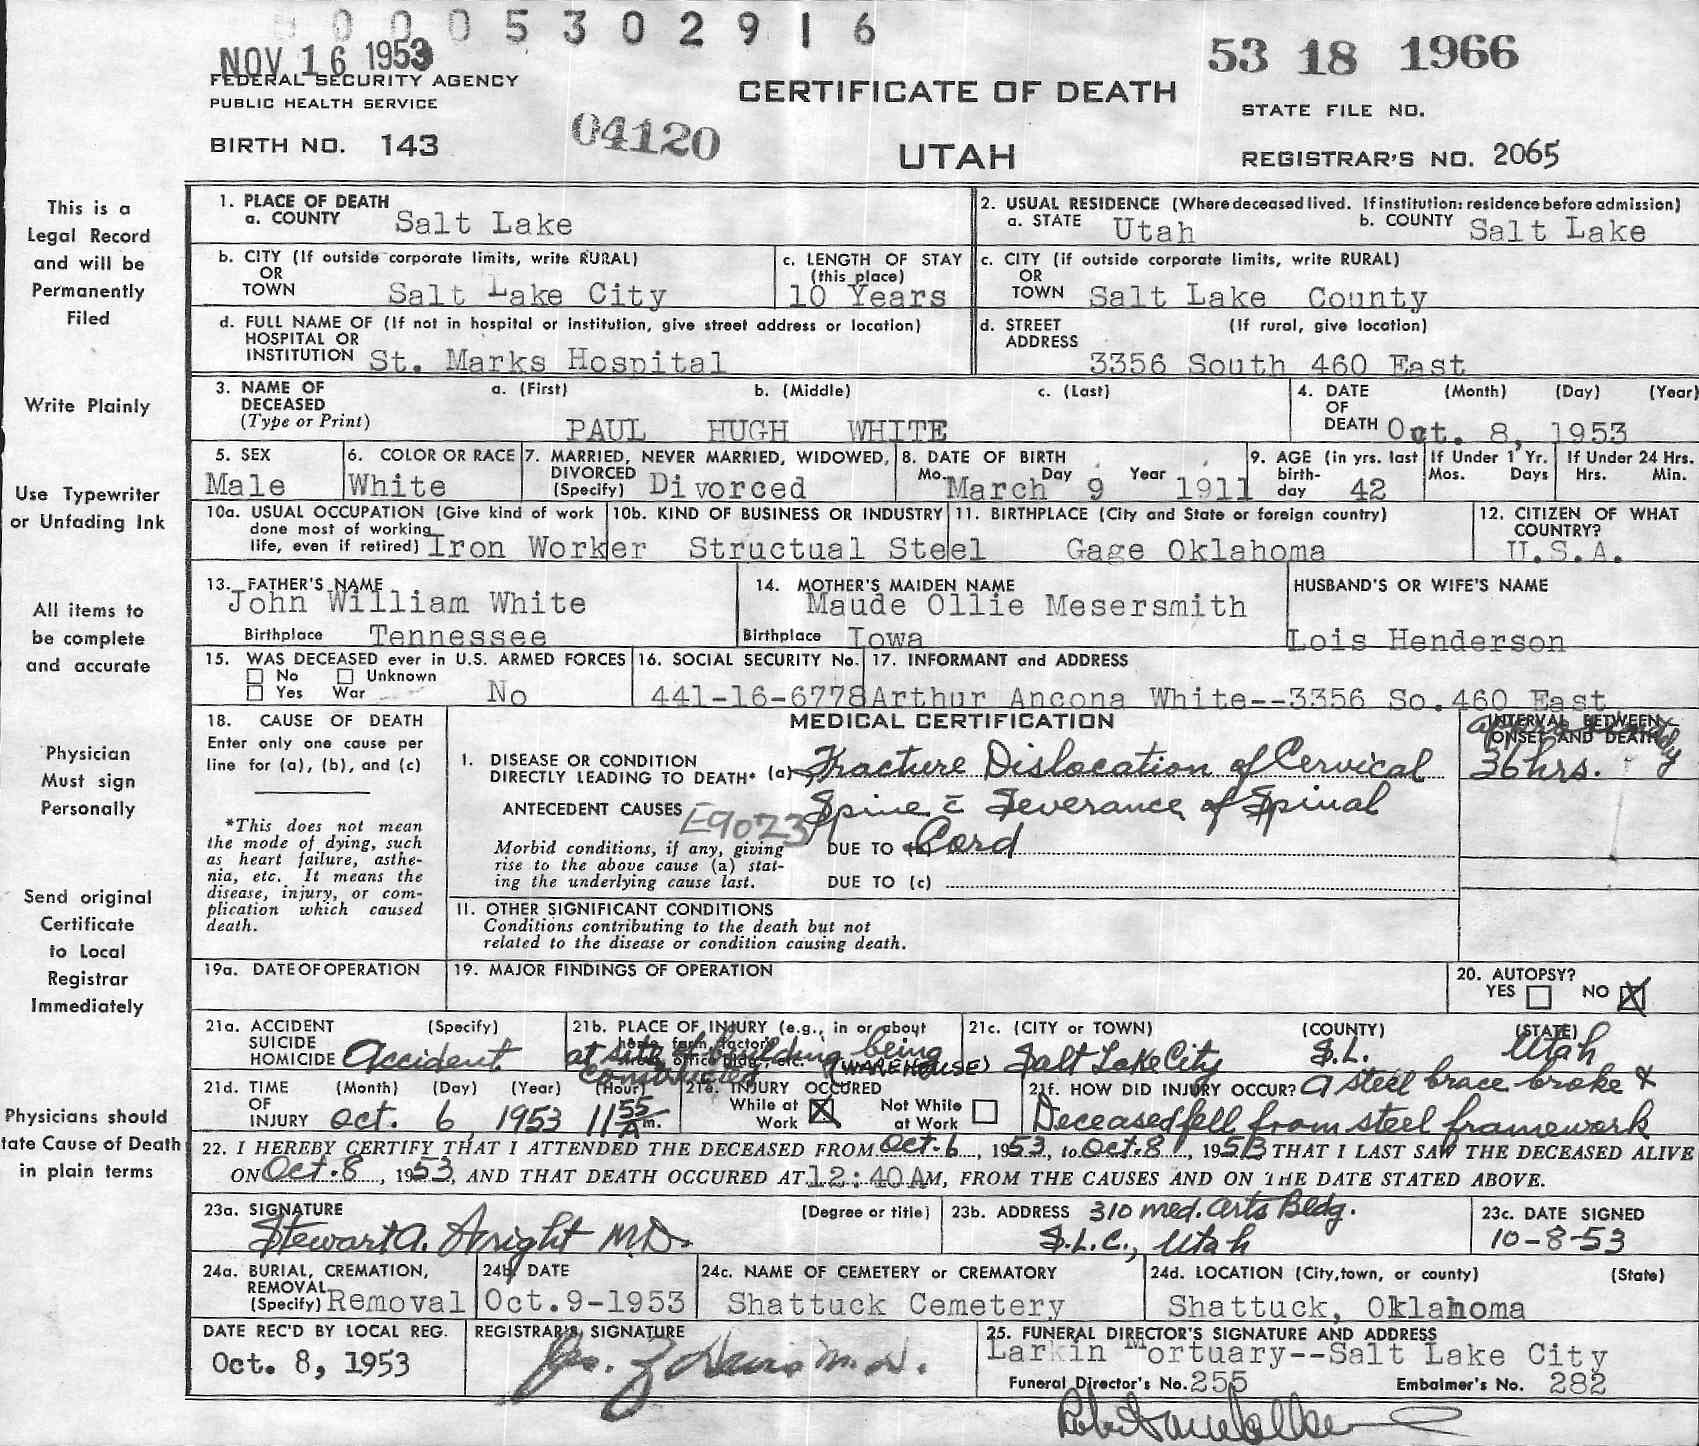 0 0 0 5 3 0 2 9 1 6
NOV 16 1953
53 18 1966
FEDERAL SECURITY AGENCY
PUBLIC HEALTH SERVICE
CERTIFICATE OF DEATH
STATE FILE NO.
BIRTH NO. 143
04120
UTAH
REGISTRAR'S NO. 2065
This is a
Legal Record
and will be
Permanently
Filed
Write Plainly
Use Typewriter
or Unfading Ink
All items to
be complete
and accurate
Physician
Must sign
Personally
Send original
Certificate
to Local
Registrar
Immediately
Physicians should
tate Cause of Death
in plain terms
1. PLACE OF DEATH
a. COUNTY Salt Lake
2. USUAL RESIDENCE (Where deceased lived. If institution: residence before admission)
a. STATE Utah b. COUNTY Salt Lake
b. CITY (If outside corporate limits, write RURAL)
OR
TOWN Salt Lake City
c. LENGTH OF STAY
(this place)
10 Years
c. CITY (if outside corporate limits, write RURAL)
OR
TOWN Salt Lake County
d. FULL NAME OF (If not in hospital or institution, give street address or location)
HOSPITAL OR
INSTITUTION St. Marks Hospital
d. STREET (If rural, give location)
ADDRESS
3356 South 460 East
3. NAME OF a. (First) b. (Middle) c. (Last)
DECEASED
(Type or Print) PAUL HUGH WHITE
4. DATE (Month) (Day) (Year)
OF
DEATH Oct. 8, 1953
5. SEX
Male
6. COLOR OR RACE
White
7. MARRIED, NEVER MARRIED, WIDOWED,
DIVORCED
(Specify) Divorced
8. DATE OF BIRTH
Mo. Day Year
March 9 1911
9. AGE (in yrs. last
birth-
day 42
If Under 1 Yr.
Mos. Days
If Under 24 Hrs.
Hrs. Min.
10a. USUAL OCCUPATION (Give kind of work
done most of working
life, even if retired) Iron Worker
10b. KIND OF BUSINESS OR INDUSTRY
Structual Steel
11. BIRTHPLACE (City and State or foreign country)
Gage Oklahoma
12. CITIZEN OF WHAT
COUNTRY?
U.S.A.
13. FATHER'S NAME
John William White
Birthplace Tennessee
14. MOTHER'S MAIDEN NAME
Maude Ollie Mesersmith
Birthplace Iowa
HUSBAND'S OR WIFE'S NAME
Lois Henderson
15. WAS DECEASED ever in U.S. ARMED FORCES
No Unknown
Yes War No
16. SOCIAL SECURITY No.
441-16-6778
17. INFORMANT and ADDRESS
Arthur Ancona White--3356 So.460 East
18. CAUSE OF DEATH
Enter only one cause per
line for (a), (b), and (c)
*This does not mean
the mode of dying, such
as heart failure, asthe-
nia, etc. It means the
disease, injury, or com-
plication which caused
death.
MEDICAL CERTIFICATION
INTERVAL BETWEEN
ONSET AND DEATH
approximately
36 hrs.
I. DISEASE OR CONDITION
DIRECTLY LEADING TO DEATH* (a) Fracture Dislocation of Cervical
ANTECEDENT CAUSES E9023 Spine c̄ Severance of Spinal
Morbid conditions, if any, giving DUE TO Cord
rise to the above cause (a) stat-
ing the underlying cause last. DUE TO (c)
II. OTHER SIGNIFICANT CONDITIONS
Conditions contributing to the death but not
related to the disease or condition causing death.
19a. DATE OF OPERATION
19. MAJOR FINDINGS OF OPERATION
20. AUTOPSY?
YES NO X
21a. ACCIDENT (Specify)
SUICIDE
HOMICIDE Accident
21b. PLACE OF INJURY (e.g., in or about
home, farm, factory,
street, office bldg., etc.
at site of building being
constructed (WAREHOUSE)
21c. (CITY or TOWN) (COUNTY) (STATE)
Salt Lake City S.L. Utah
21d. TIME (Month) (Day) (Year) (Hour)
OF
INJURY Oct. 6, 1953 11 55 A m.
21e. INJURY OCCURED
While at Work X Not While at Work
21f. HOW DID INJURY OCCUR? A steel brace broke &
Deceased fell from steel framework
22. I HEREBY CERTIFY THAT I ATTENDED THE DECEASED FROM Oct. 6, 1953, to Oct. 8, 1953 THAT I LAST SAW THE DECEASED ALIVE
ON Oct. 8, 1953, AND THAT DEATH OCCURED AT 12:40 AM, FROM THE CAUSES AND ON THE DATE STATED ABOVE.
23a. SIGNATURE (Degree or title)
Stewart A. Wright M.D.
23b. ADDRESS 310 Med. Arts Bldg.
S.L.C., Utah
23c. DATE SIGNED
10-8-53
24a. BURIAL, CREMATION,
REMOVAL
(Specify) Removal
24b. DATE
Oct.9-1953
24c. NAME OF CEMETERY or CREMATORY
Shattuck Cemetery
24d. LOCATION (City, town, or county) (State)
Shattuck, Oklahoma
DATE REC'D BY LOCAL REG.
Oct. 8, 1953
REGISTRAR'S SIGNATURE
M.D.
25. FUNERAL DIRECTOR'S SIGNATURE AND ADDRESS
Larkin Mortuary--Salt Lake City
Funeral Director's No. 255 Embalmer's No. 282